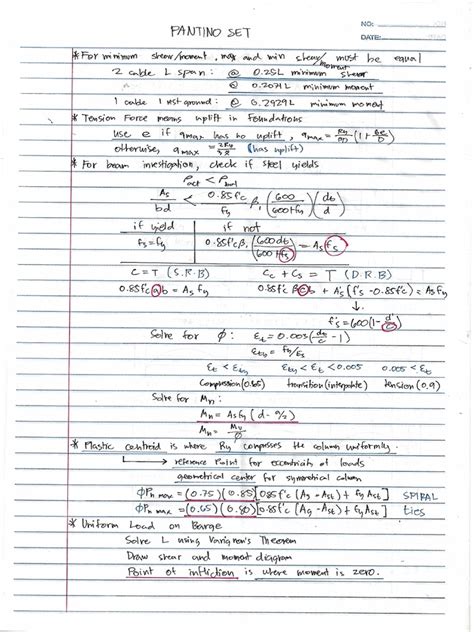 PANTINO SET
NO:
DATE:
* For minimum shear/moment, max and min shear/moment must be equal
2 cable L span : @ 0.25L minimum shear
@ 0.2071L minimum moment
1 cable 1 rest ground : @ 0.2929L minimum moment
* Tension Force means uplift in foundations
use e if qmax has no uplift, qmax = Ru/BD (1 + 6e/D)
otherwise, qmax = (has uplift)
* For beam investigation, check if steel yields
ρact < ρbal
As/bd < 0.85f'c/fy β1 (600/600+fy) (dt/d)
if yield | if not
fs = fy | 0.85f'cβ1 (600dt/600+fs) = As fs
C = T (S.R.B) Cc + Cs = T (D.R.B)
0.85f'c a b = As fy 0.85f'c βc b + A's (f's - 0.85f'c) = As fy
f's = 600(1 - d'/c)
Solve for φ: Et = 0.003 (dt/c - 1)
Ety = fy/Es
Et < Ety Ety < Et < 0.005 0.005 < Et
compression (0.65) transition (interpolate) tension (0.9)
Solve for Mn:
Mn = As fy (d - a/2)
Mn = Mu/φ
* Plastic centroid is where Ru compresses the column uniformly.
→ reference point for eccentricity of loads
geometrical center for symmetrical column
φPn max = (0.75)(0.85)[0.85f'c (Ag - Ast) + fy Ast] SPIRAL
φPn max = (0.65)(0.80)[0.85f'c (Ag - Ast) + fy Ast] ties
* Uniform Load on Barge
Solve L using Varignon's Theorem
Draw shear and moment diagram
Point of infliction is where moment is zero.